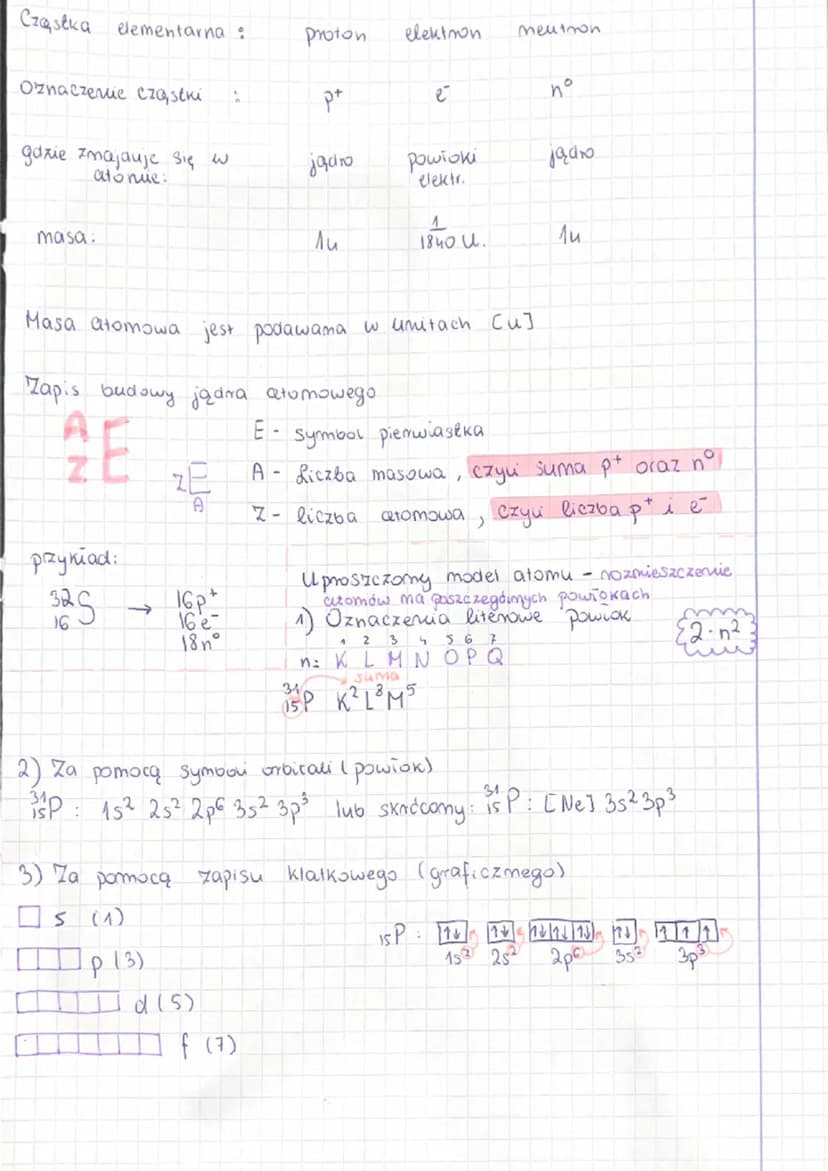 Cząstka elementarna : proton elektron neutron
Oznaczenie cząstki : p⁺ e⁻ n⁰
gdzie znajduje się w atomie: jądro powłoki elektr. jądro
masa: 1u 1/1840 u. 1u
Masa atomowa jest podawana w unitach [u]
Zapis budowy jądra atomowego
A Z E
Z E A
E - symbol pierwiastka
A - liczba masowa, czyli suma p⁺ oraz n⁰
Z - liczba atomowa, czyli liczba p⁺ i e⁻
przykład:
³²₁₆S → 16p⁺
16e⁻
18n⁰
Uproszczony model atomu - rozmieszczenie
atomów na poszczególnych powłokach
1) Oznaczenia literowe powłok
2·n²
1 2 3 4 5 6 7
n: K L M N O P Q
suma
³¹₁₅P K²L⁸M⁵
2) Za pomocą symboli orbitali (powłok)
³¹₁₅P : 1s² 2s² 2p⁶ 3s² 3p³ lub skrócony: ³¹₁₅P : [Ne] 3s² 3p³
3) Za pomocą zapisu klatkowego (graficznego)
s (1)
p (3)
d (5)
f (7)
₁₅P : ↑↓ ↑↓ ↑↓ ↑↓ ↑↓ ↑↓ ↑ ↑ ↑
1s² 2s² 2p⁶ 3s² 3p³